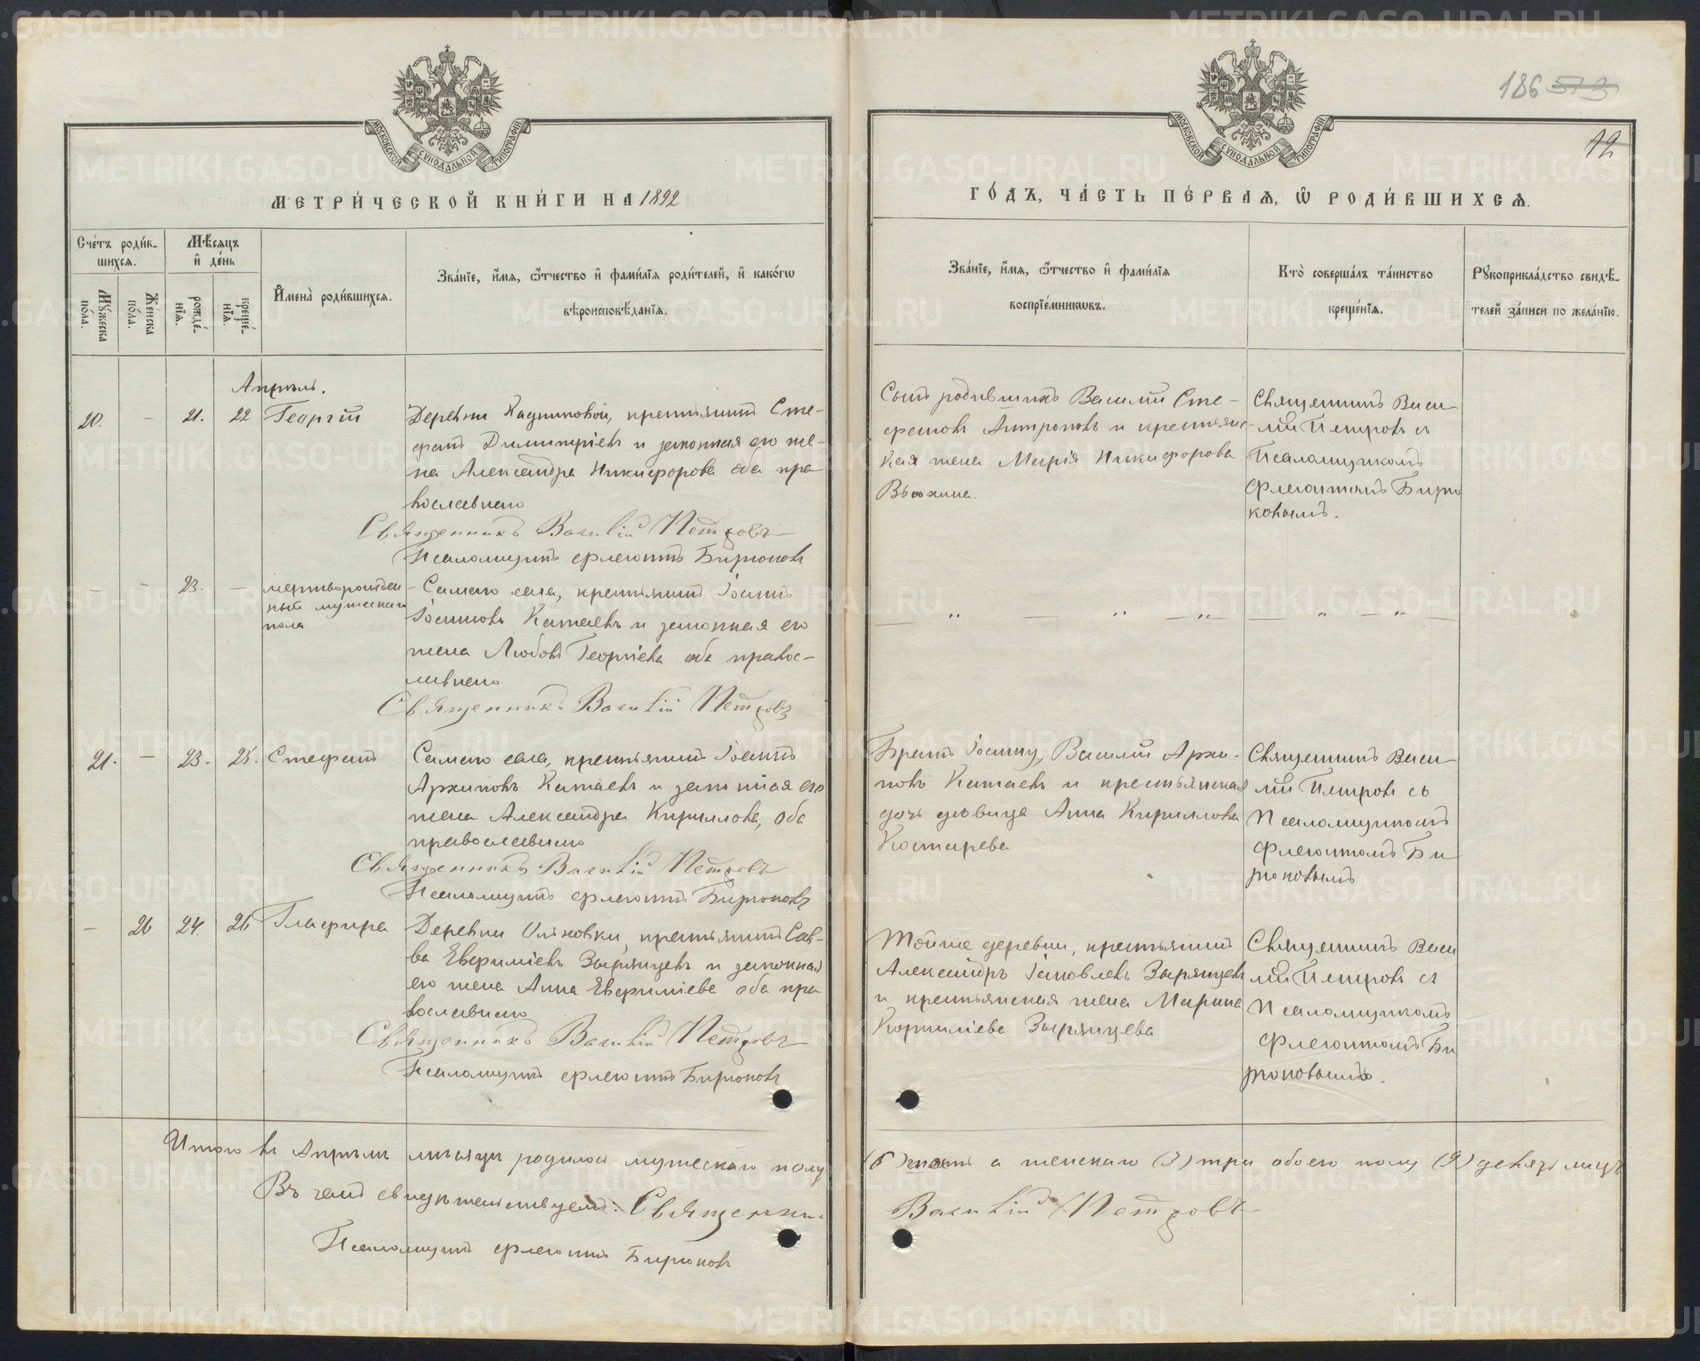 186 573
12
МОСКОВСКОЙ СѴНОДАЛЬНОЙ ТИПОГРАФІИ
МОСКОВСКОЙ СѴНОДАЛЬНОЙ ТИПОГРАФІИ
МЕТРИ́ЧЕСКОЙ КНИ́ГИ НА 1892
ГО́ДЪ, ЧА́СТЬ ПЕ́РВАЯ, Ѡ РОДИ́ВШИХСЯ.
Сче́тъ роди́в-
шихся.
Мꙋжеска по́ла.
Же́нска по́ла.
Мѣ́сяцъ
и҆ де́нь
рожде́-
нїя.
креще́-
нїя.
И҆мена̀ роди́вшихся.
Зва́нїе, и҆́мя, ѻ҆́тчество и҆ фами́лїя роди́телей, и҆ како́гѡ
вѣроисповѣ́данїя.
Зва́нїе, и҆́мя, ѻ҆́тчество и҆ фами́лїя
воспрїе́мникѡвъ.
Кто̀ соверша́лъ та́инство
креще́нїя.
Рꙋкоприкла́дство свидѣ́-
телей за́писи по жела́нїю.
Апрѣль.
20. - 21. 22 Георгій
Деревни Кадниковой, крестьянинъ Сте-
фанъ Димитріевъ и законная его же-
на Александра Никифорова оба пра
вославные
Священникъ Василій Петровъ
Псаломщикъ Флегонтъ Бирюковъ
Сынъ родившихъ Василій Сте-
фановъ Антроповъ и крестьянс-
кая жена Марія Никифорова
Священникъ Васи-
лій Петровъ съ
Псаломщикомъ
Флегонтомъ Бирю
ковымъ.
- - 23. - мертворожден
ный мужескаго
пола
Самаго села, крестьянинъ Іоаннъ
Іоанновъ Катаевъ и законная его
жена Любовь Георгіева оба правос-
лавные
Священникъ Василій Петровъ
— „ — „ — „ — — „ — „
21. - 23. 25. Стефанъ
Самаго села, крестьянинъ Іоаннъ
Архиповъ Катаевъ и законная его
жена Александра Кириллова, оба
православные
Священникъ Василій Петровъ
Псаломщикъ Флегонтъ Бирюковъ
Братъ Іоанну, Василій Архи-
повъ Катаевъ и крестьянская
дочь дѣвица Анна Кириллова
Костарева
Священникъ Васи-
лій Петровъ съ
Псаломщикомъ
Флегонтомъ Би
рюковымъ
- 26 24. 26 Глафира
Деревни крестьянинъ Сав-
ва Евфиміевъ Зырянцевъ и законная
его жена Анна Евфиміева оба пра
вославные
Священникъ Василій Петровъ
Псаломщикъ Флегонтъ Бирюковъ
Тойже деревни, крестьянинъ
Александръ Іаковлевъ Зырянцевъ
и крестьянская жена Марина
Корниліева Зырянцева
Священникъ Васи
лій Петровъ съ
Псаломщикомъ
Флегонтомъ Би
рюковымъ.
Итого въ Апрѣлѣ мѣсяцѣ родилось мужескаго полу (6) шесть а женскаго (3) три обоего полу (9) девять лицъ
Въ чемъ свидѣтельствуемъ: Священни. Василій Петровъ
Псаломщикъ Флегонтъ Бирюковъ
METRIKI.GASO-URAL.RU